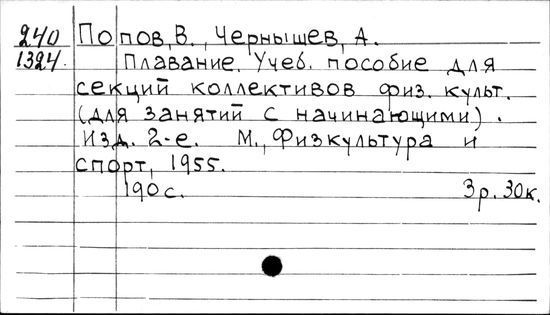 240 Попов, В., Чернышев, А.
1324. Плавание. Учеб. пособие для
секций коллективов физ. культ.
(для занятий с начинающими).
Изд. 2-е. М., Физкультура и
спорт, 1955.
190 с. 3 р. 30 к.